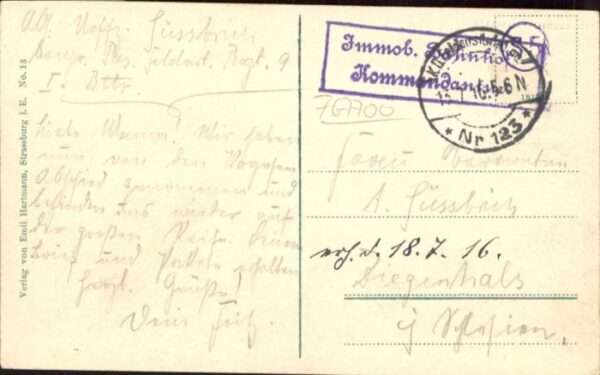 Abs. Uoffz. Süssbrich
Bayr. Res. Feldart. Regt. 9
I. Bttr.
Liebe Mama! Wir haben
nun von den Vogesen
Abschied genommen und
befinden uns wieder auf
der großen Reise. Deinen
Brief und Pakete erhalten
herzl. Grüße!
Dein Fritz.
Verlag von Emil Hartmann, Strassburg i. E. No. 13
Immob. Bahnhof
Kommandantur
16. 5-6 N
* Nr 123 *
76700
Frau
A. Süssbrich
erh. d. 18. 7. 16.
Ziegenhals
i/ Schlesien.